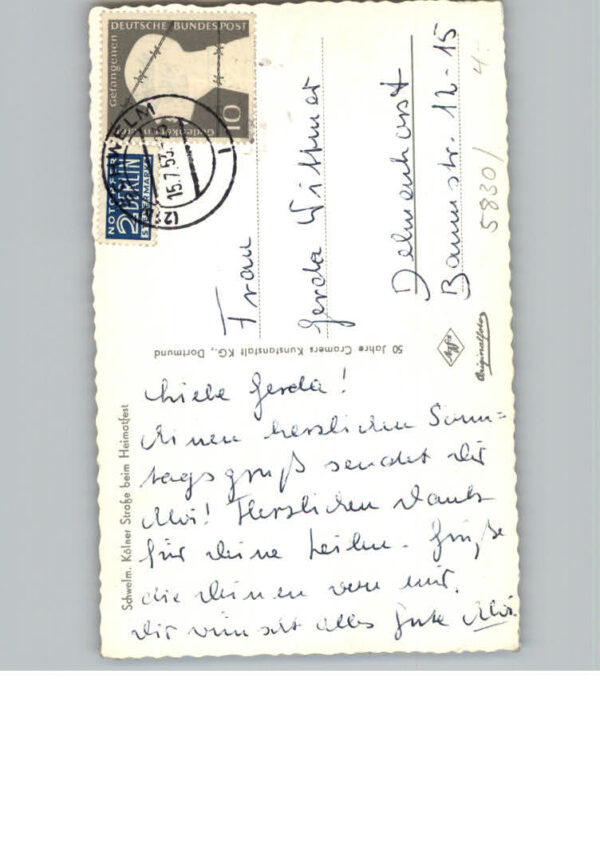 DEUTSCHE BUNDESPOST
Gefangenen
10
NOTOPFER
2 BERLIN
STEUERMARKE
SCHWELM
15.7.53
Frau
Gerda Wittmer
Delmenhorst
Baumstr. 12-15
5830/
4.
50 Jahre Cramers Kunstanstalt KG., Dortmund
Agfa
Originalfoto
Schwelm. Kölner Straße beim Heimatfest
Liebe Gerda!
Einen herzlichen Sonn=
tagsgruß sendet Dir
Herzlichen Dank
für Deine Zeilen. Grüße
die Deinen von mir.
Dir wünscht alles Gute